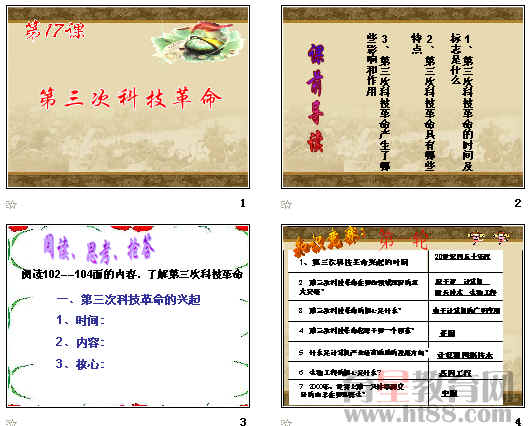 第17课
第三次科技革命
1
课前导读
1、第三次科技革命的时间及
标志是什么
2、第三次科技革命具有哪些
特点
3、第三次科技革命产生了哪
些影响和作用
2
阅读、思考、抢答
阅读102---104面的内容，了解第三次科技革命
一、第三次科技革命的兴起
1、时间：
2、内容：
3、核心：
3
知识竞赛：第一轮
1、第三次科技革命兴起的时间
3、第三次科技革命的核心是什么？
电子计算机的广泛应用
4、第三次科技革命起源于哪一个国家？
美国
5、什么是计算机产业继续崛起的发展方向？
计算机网络技术
6、生物工程的核心是什么？
基因工程
中国
4
育星教育网
www.ht88.com